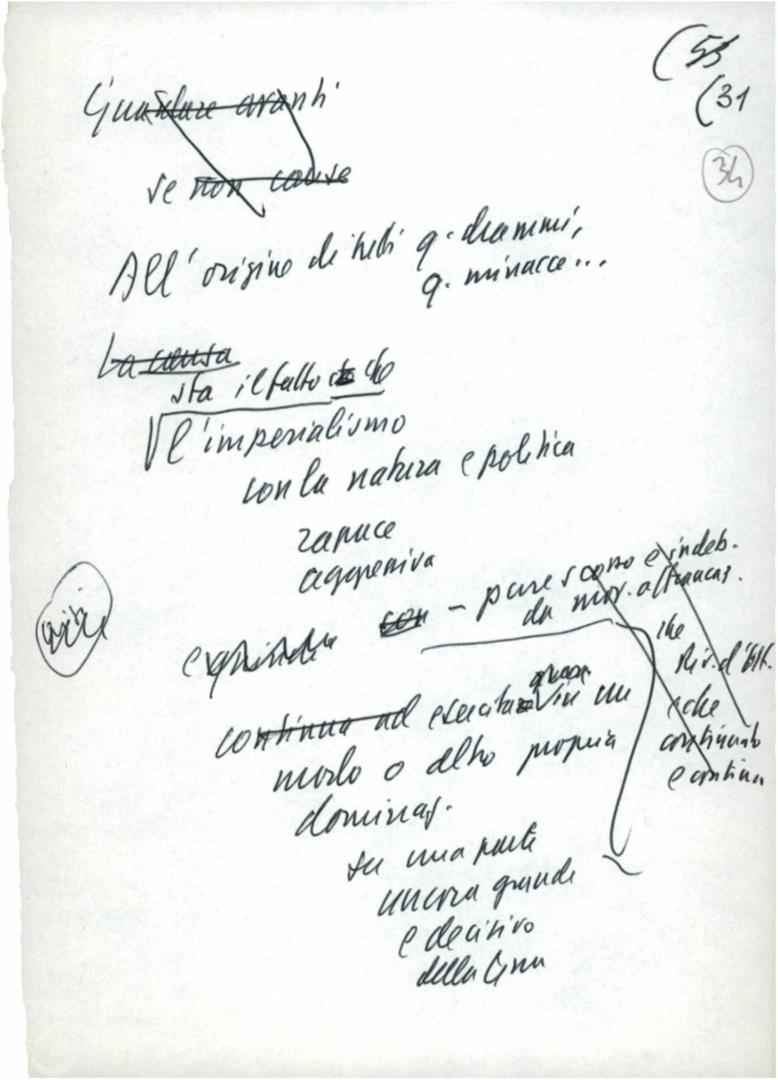 (55
(31
34
Guardare avanti
se non cause
All'origine di tutti q. drammi,
q. minacce...
La causa
sta il fatto che
l'imperialismo
con la natura e politica
rapace
aggressiva
- pure scosso e indeb.
da mov. a francaz.
che
e che
continuato
e continua
continua ad esercitare in un
modo o altro propria
dominaz.
su una parte
ancora grande
e decisiva
della